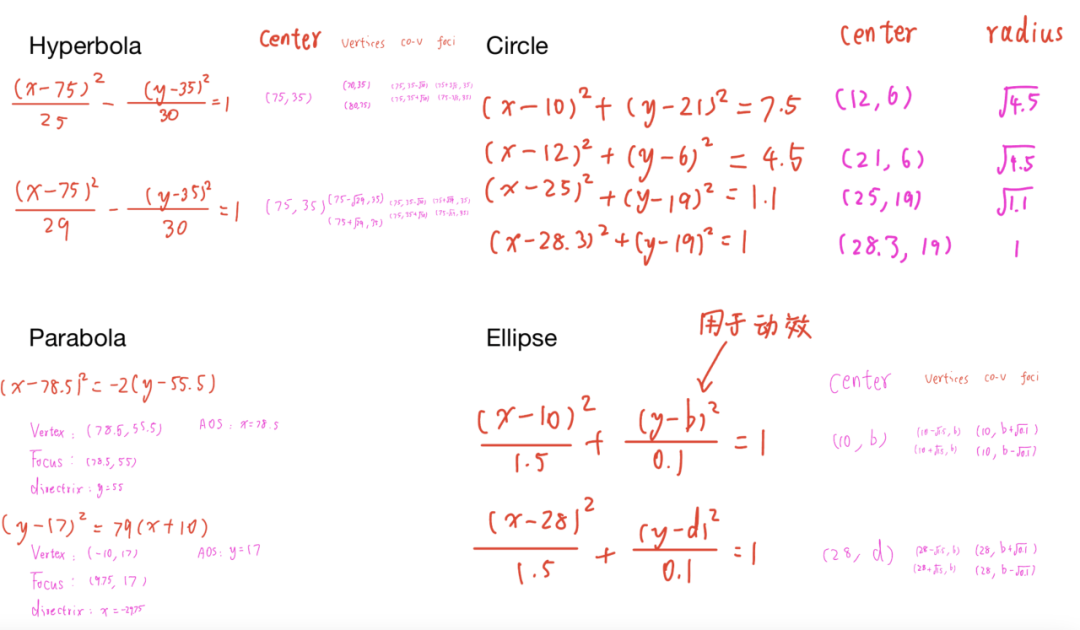 Hyperbola
Center vertices co-v foci
(x-75)²/25 - (y-35)²/30 = 1
(75,35)
(70,35)
(80,35)
(x-75)²/29 - (y-35)²/30 = 1
(75,35)
(75-√29,35)
Circle
center radius
(x-10)²+(y-21)²=7.5 (12,6) √4.5
(x-12)²+(y-6)²=4.5 (21,6)
(x-25)²+(y-19)²=1.1 (25,19) √1.1
(x-28.3)²+(y-19)²=1 (28.3,19) 1
Parabola
(x-78.5)²=-2(y-55.5)
Vertex: (78.5,55.5) AOS: x=78.5
Focus: (78.5,55)
directrix: y=55
(y-17)²=79(x+10)
Vertex: (-10,17) AOS: y=17
Focus: (9.75,17)
directrix: x=-29.75
Ellipse
用于动效
Center vertices co-v foci
(x-10)²/1.5 + (y-b)²/0.1 = 1
(10,b)
(10-√1.5,b) (10,b+√0.1)
(10+√1.5,b) (10,b-√0.1)
(x-28)²/1.5 + (y-d)²/0.1 = 1
(28,d)
(28-√1.5,b) (28,b+√0.1)
(28+√1.5,b) (28,b-√0.1)